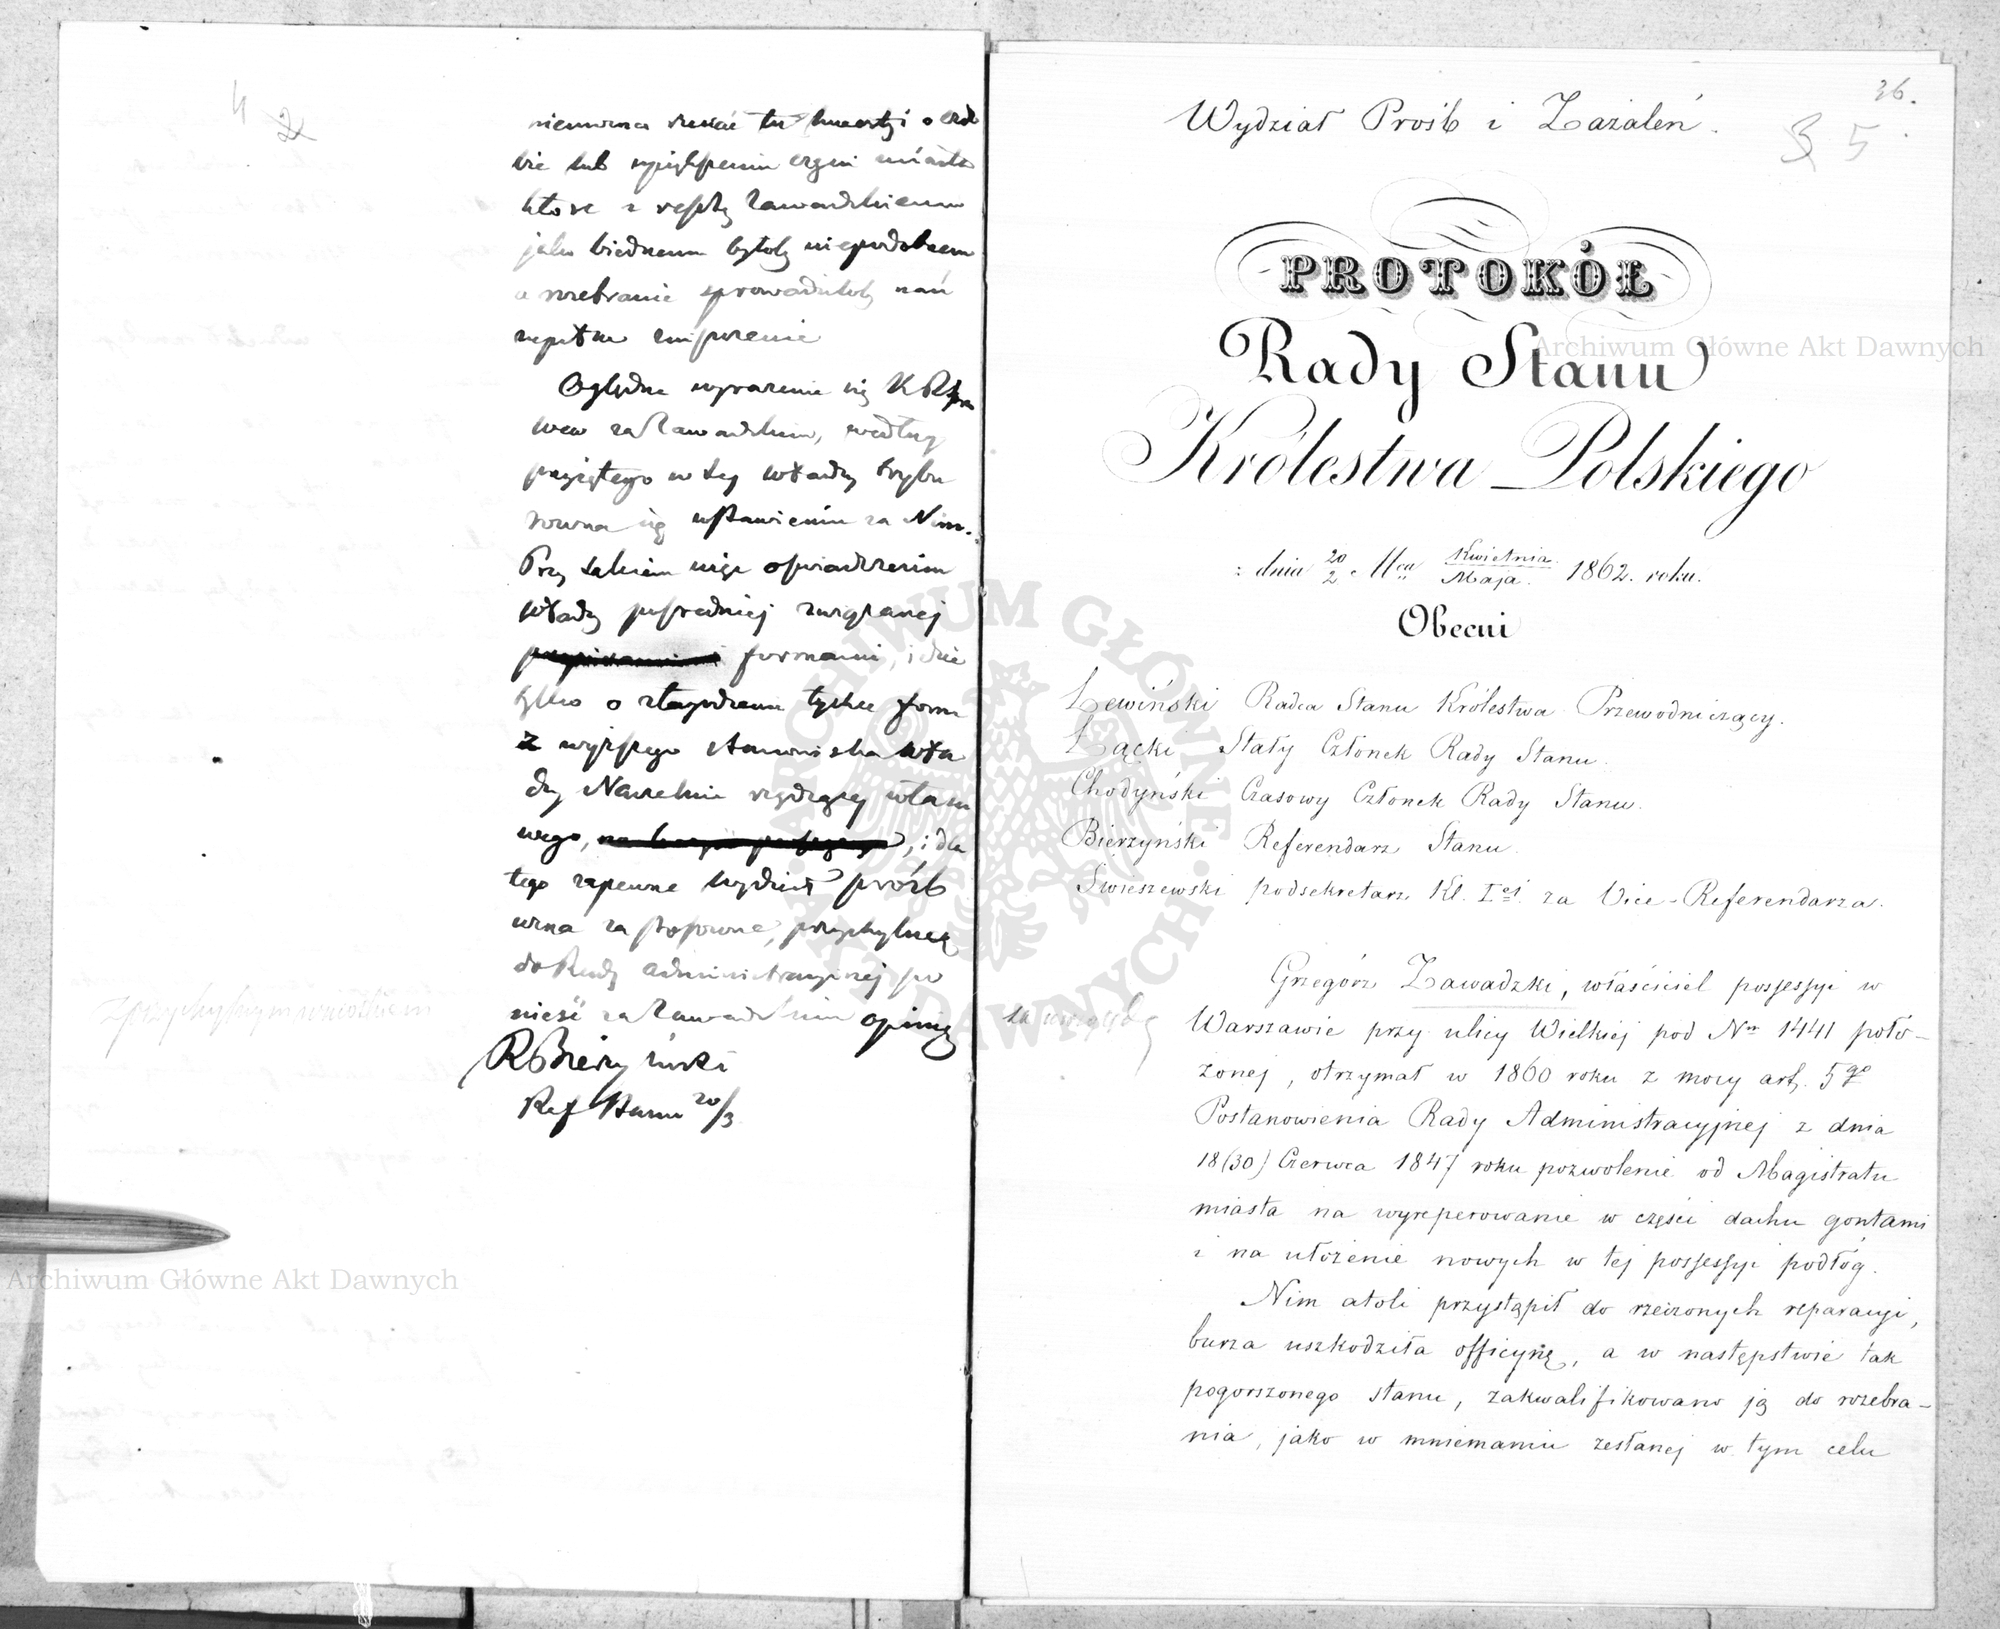 4 2
nie można
bie lub upiększeniu
które z resztą Zawadzkiemu
jako biednemu byłoby niepodobnem
a rozebranie sprowadziłoby nań
zupełne zniszczenie
Oględne wyrażenie się K R Spra
wew za Zawadzkim, według
przyjętego w tej władzy trybu
równa się wstawieniu za Nim.
Przy takiem więc oświadczeniu
władzy pośredniej związanej
formami, idzie
tylko o złagodzenie tychże form
z wyższego stanowiska Wła
dzy Naczelnie rządzącej
wego, i dla
tego zapewne Wydział próśb
uzna za stosowne, przychylną
do Rady Administracyjnej po
nieść za Zawadzkim opinią
R Bierzyński
Ref Stanu 20/3
z przychylnym wnioskiem
36.
Wydział Próśb i Zażaleń.
3 5
PROTOKÓŁ
Rady Stanu
Królestwa Polskiego
z dnia 20/2 Mca Kwietnia/Maja 1862. roku.
Obecni
Lewiński Radca Stanu Królestwa Przewodniczący.
Łącki Stały Członek Rady Stanu.
Chodyński Czasowy Członek Rady Stanu.
Bierzyński Referendarz Stanu.
Swieszewski podsekretarz Kl. Iej za Vice-Referendarza.
Grzegórz Zawadzki, właściciel possessyi w
Warszawie przy ulicy Wielkiej pod Nr 1441 poło-
żonej, otrzymał w 1860 roku z mocy art. 5go
Postanowienia Rady Administracyjnej z dnia
18(30) Czerwca 1847 roku pozwolenie od Magistratu
miasta na wyreperowanie w części dachu gontami
i na ułożenie nowych w tej possessyi podłóg.
Nim atoli przystąpił do rzeczonych reparacyi,
burza uszkodziła officynę, a w następstwie tak
pogorszonego stanu, zakwalifikowano ją do rozebra-
nia, jako w mniemaniu zesłanej w tym celu
Archiwum Główne Akt Dawnych
Archiwum Główne Akt Dawnych
ARCHIWUM GŁÓWNE AKT DAWNYCH